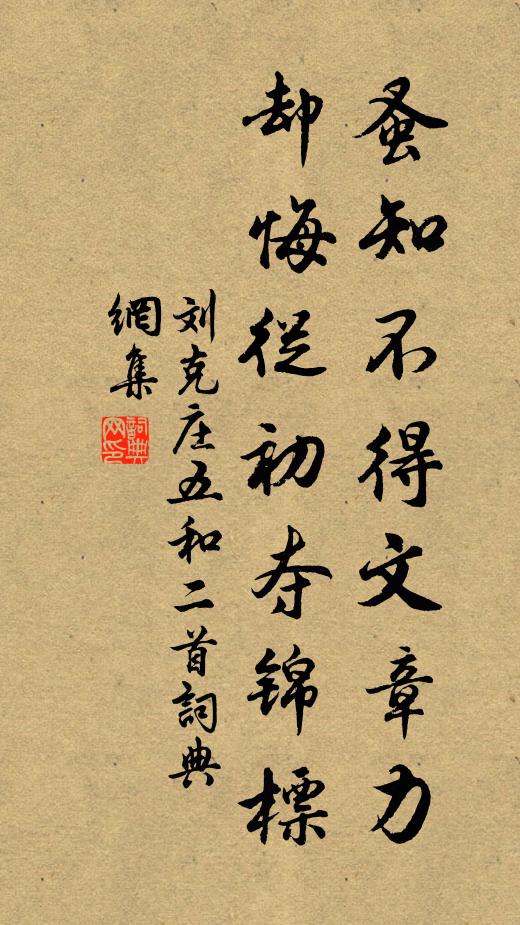 蚤知不得文章力
却悔從初夺锦標
刘克庄五和二首詞典
網集
詞典
网印